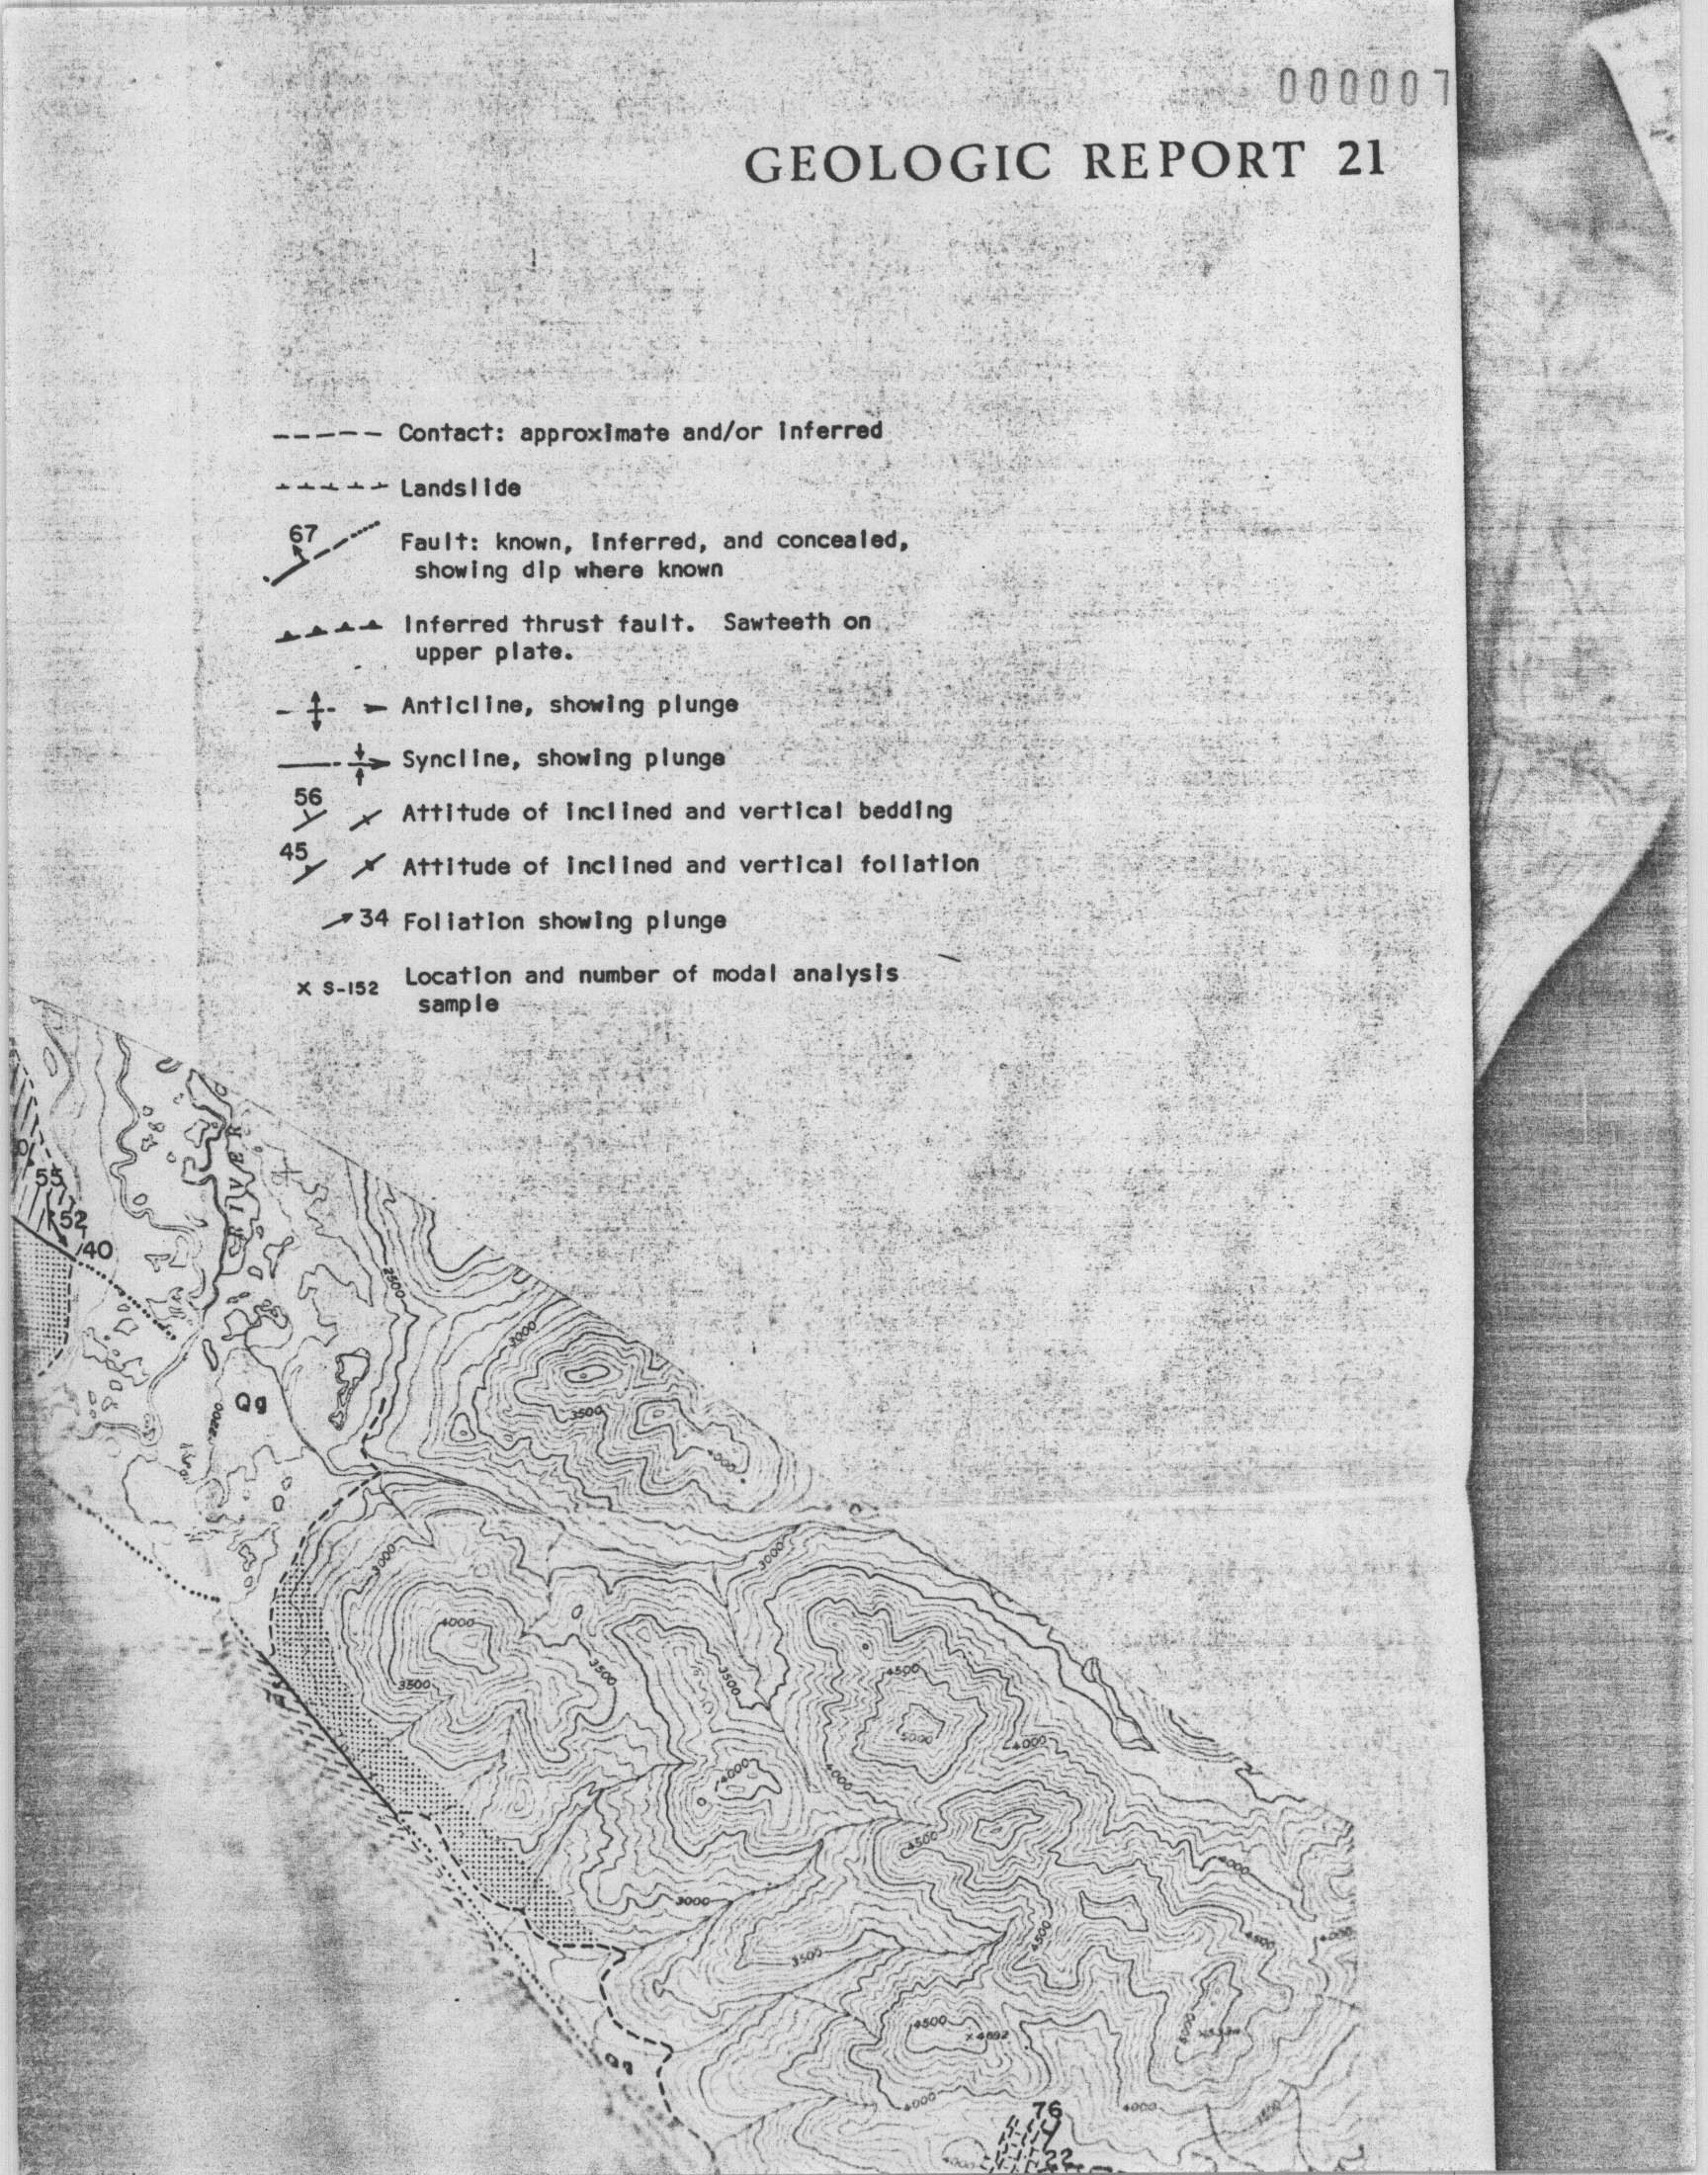 000007
GEOLOGIC REPORT 21
Contact: approximate and/or inferred
Landslide
67
Fault: known, inferred, and concealed,
showing dip where known
Inferred thrust fault. Sawteeth on
upper plate.
Anticline, showing plunge
Syncline, showing plunge
56
Attitude of inclined and vertical bedding
45
Attitude of inclined and vertical foliation
34 Foliation showing plunge
x S-152 Location and number of modal analysis
sample
55
52
40
RIVER
2500
3000
3500
4000
Qg
2500
3000
3000
4000
3500
3500
3500
4500
5000
4000
4000
4000
4500
4000
3000
3500
4500
4500
4000
4500
x 4692
5000
4000
4000
3500
Qg
76
22
4000